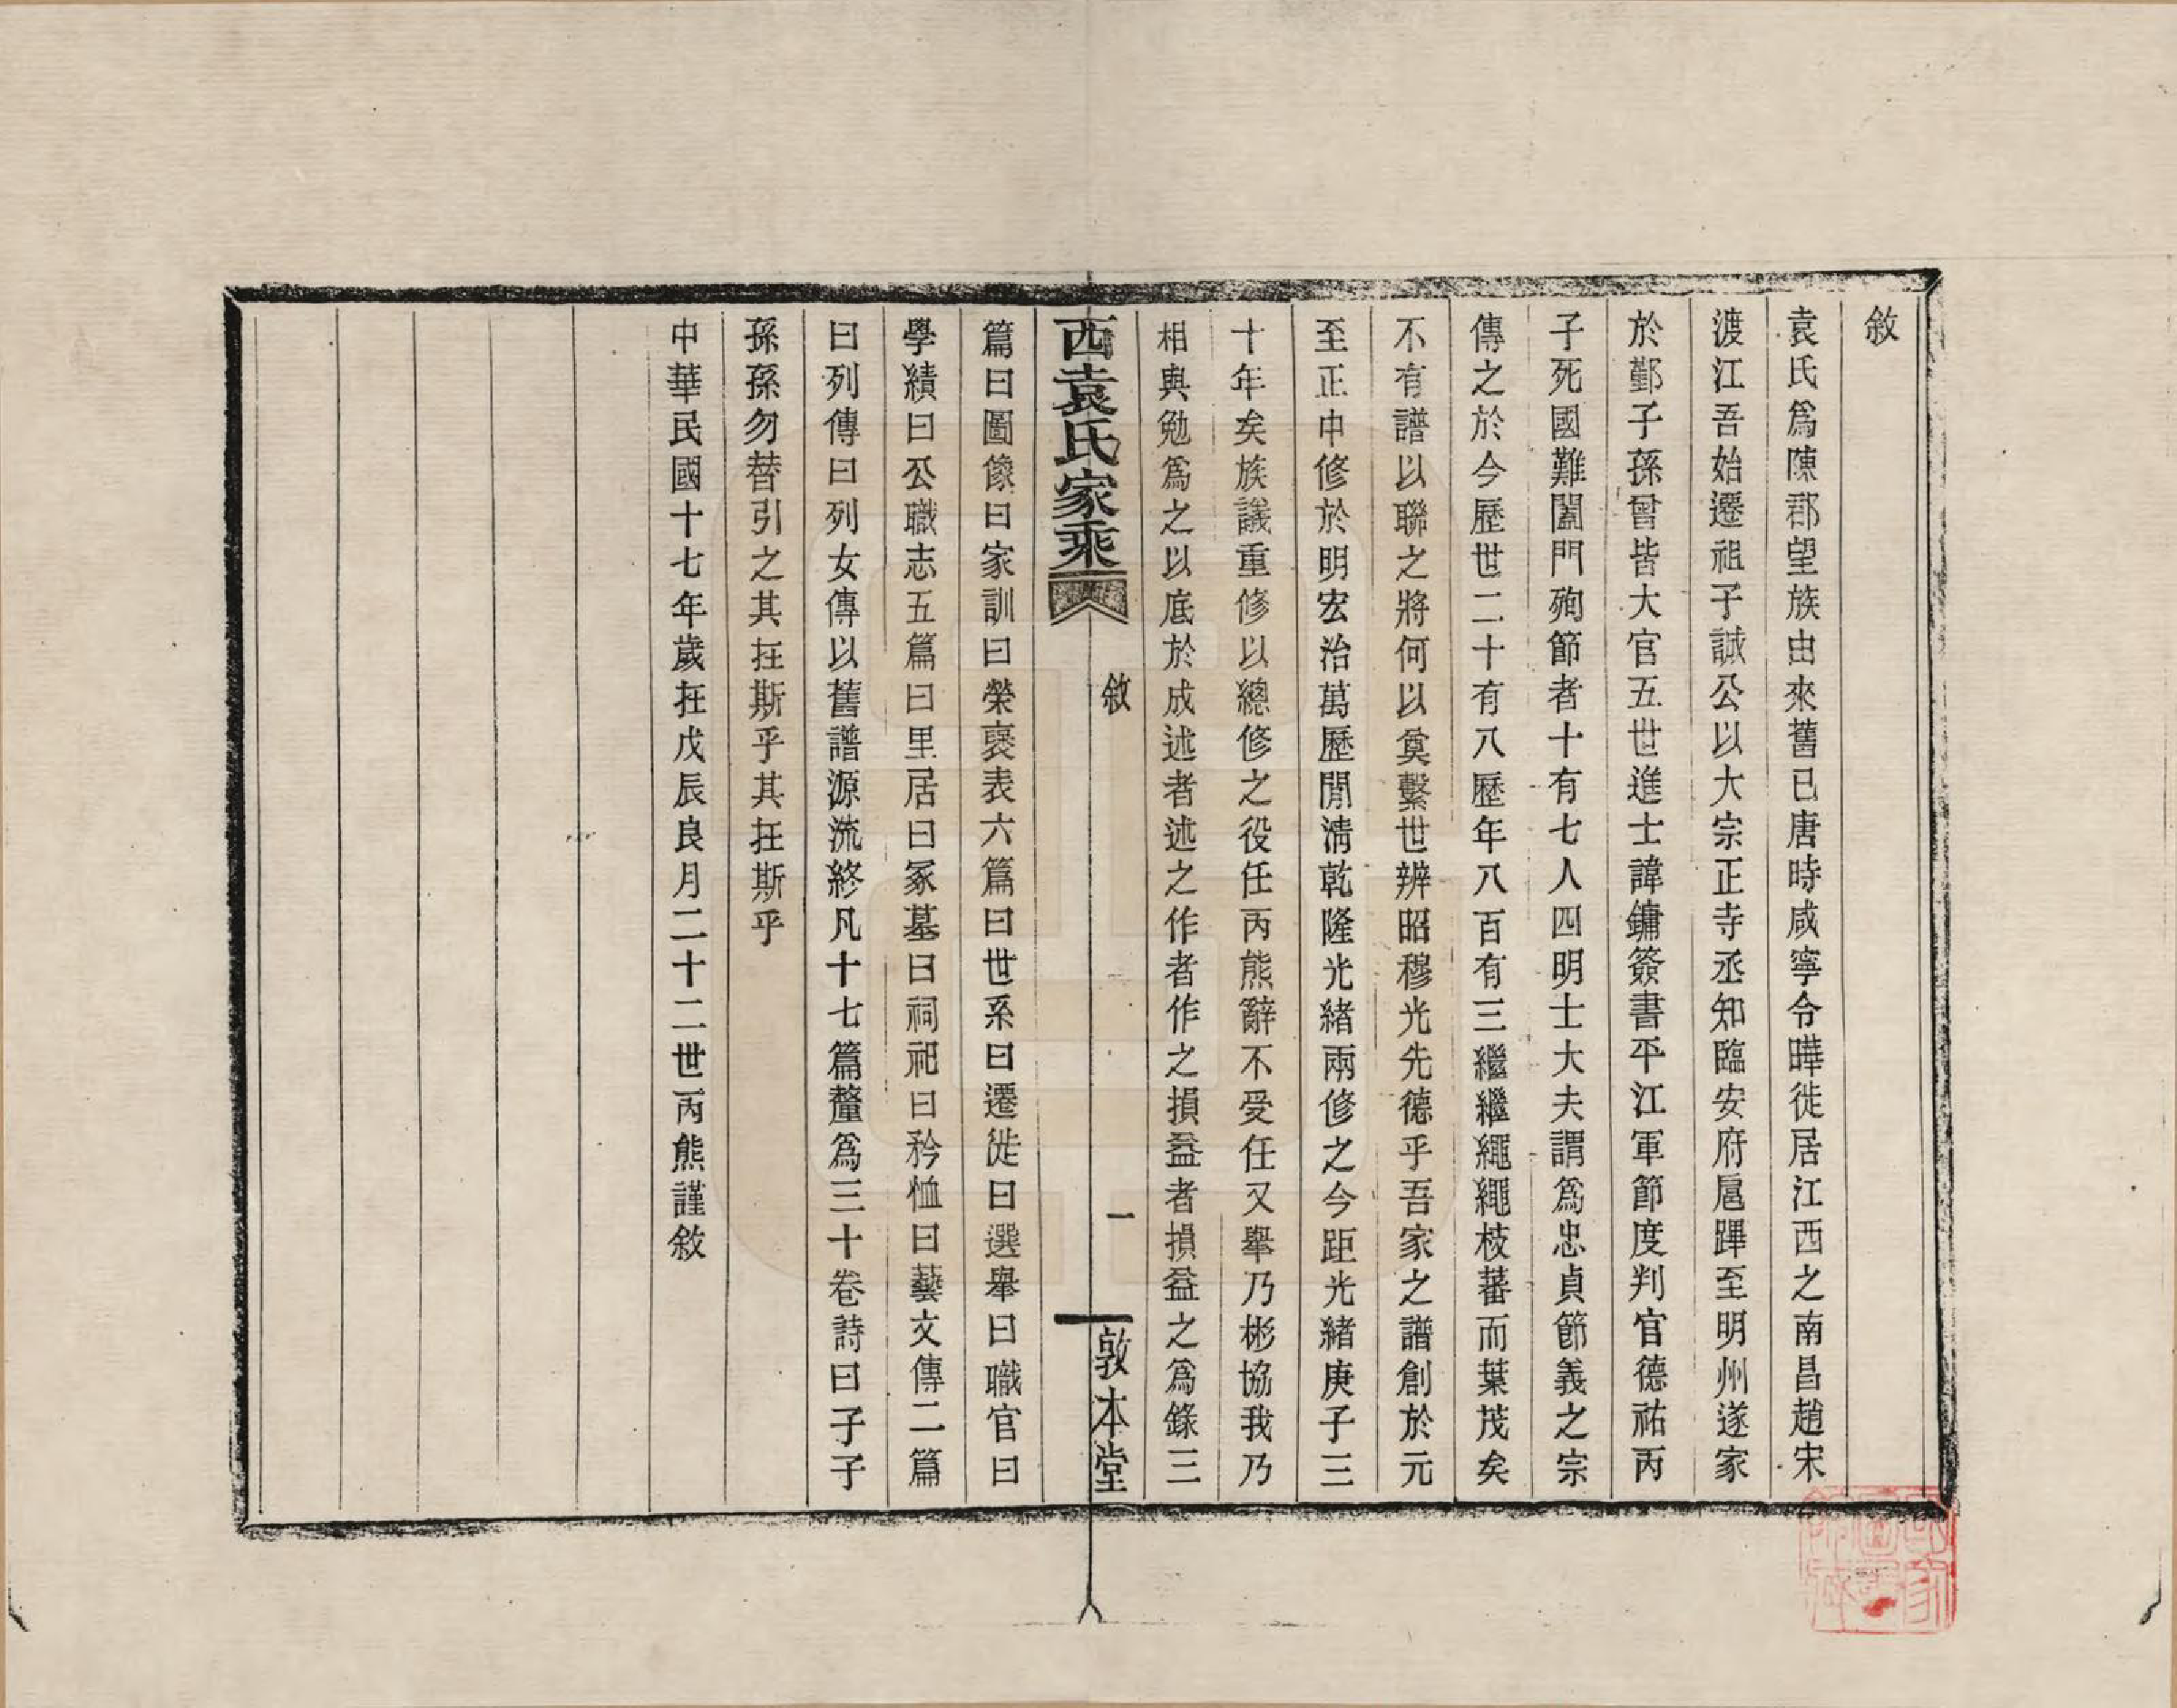 敘
袁氏爲陳郡望族由來舊已唐時咸寧令曄徙居江西之南昌趙宋
渡江吾始遷祖子誠公以大宗正寺丞知臨安府扈蹕至明州遂家
於鄞子孫曾皆大官五世進士諱鏞簽書平江軍節度判官德祐丙
子死國難闔門殉節者十有七人四明士大夫謂爲忠貞節義之宗
傳之於今歷世二十有八歷年八百有三繼繼繩繩枝蕃而葉茂矣
不有譜以聯之將何以奠繫世辨昭穆光先德乎吾家之譜創於元
至正中修於明宏治萬歷閒淸乾隆光緒兩修之今距光緒庚子三
十年矣族議重修以總修之役任丙熊辭不受任又舉乃彬協我乃
相與勉爲之以底於成述者述之作者作之損益者損益之爲錄三
西袁氏家乘
敘
一
敦本堂
篇曰圖像曰家訓曰榮褒表六篇曰世系曰遷徙曰選舉曰職官曰
學績曰公職志五篇曰里居曰冢墓曰祠祀曰矜恤曰藝文傳二篇
曰列傳曰列女傳以舊譜源流終凡十七篇釐爲三十卷詩曰子子
孫孫勿替引之其在斯乎其在斯乎
中華民國十七年歲在戊辰良月二十二世丙熊謹敘